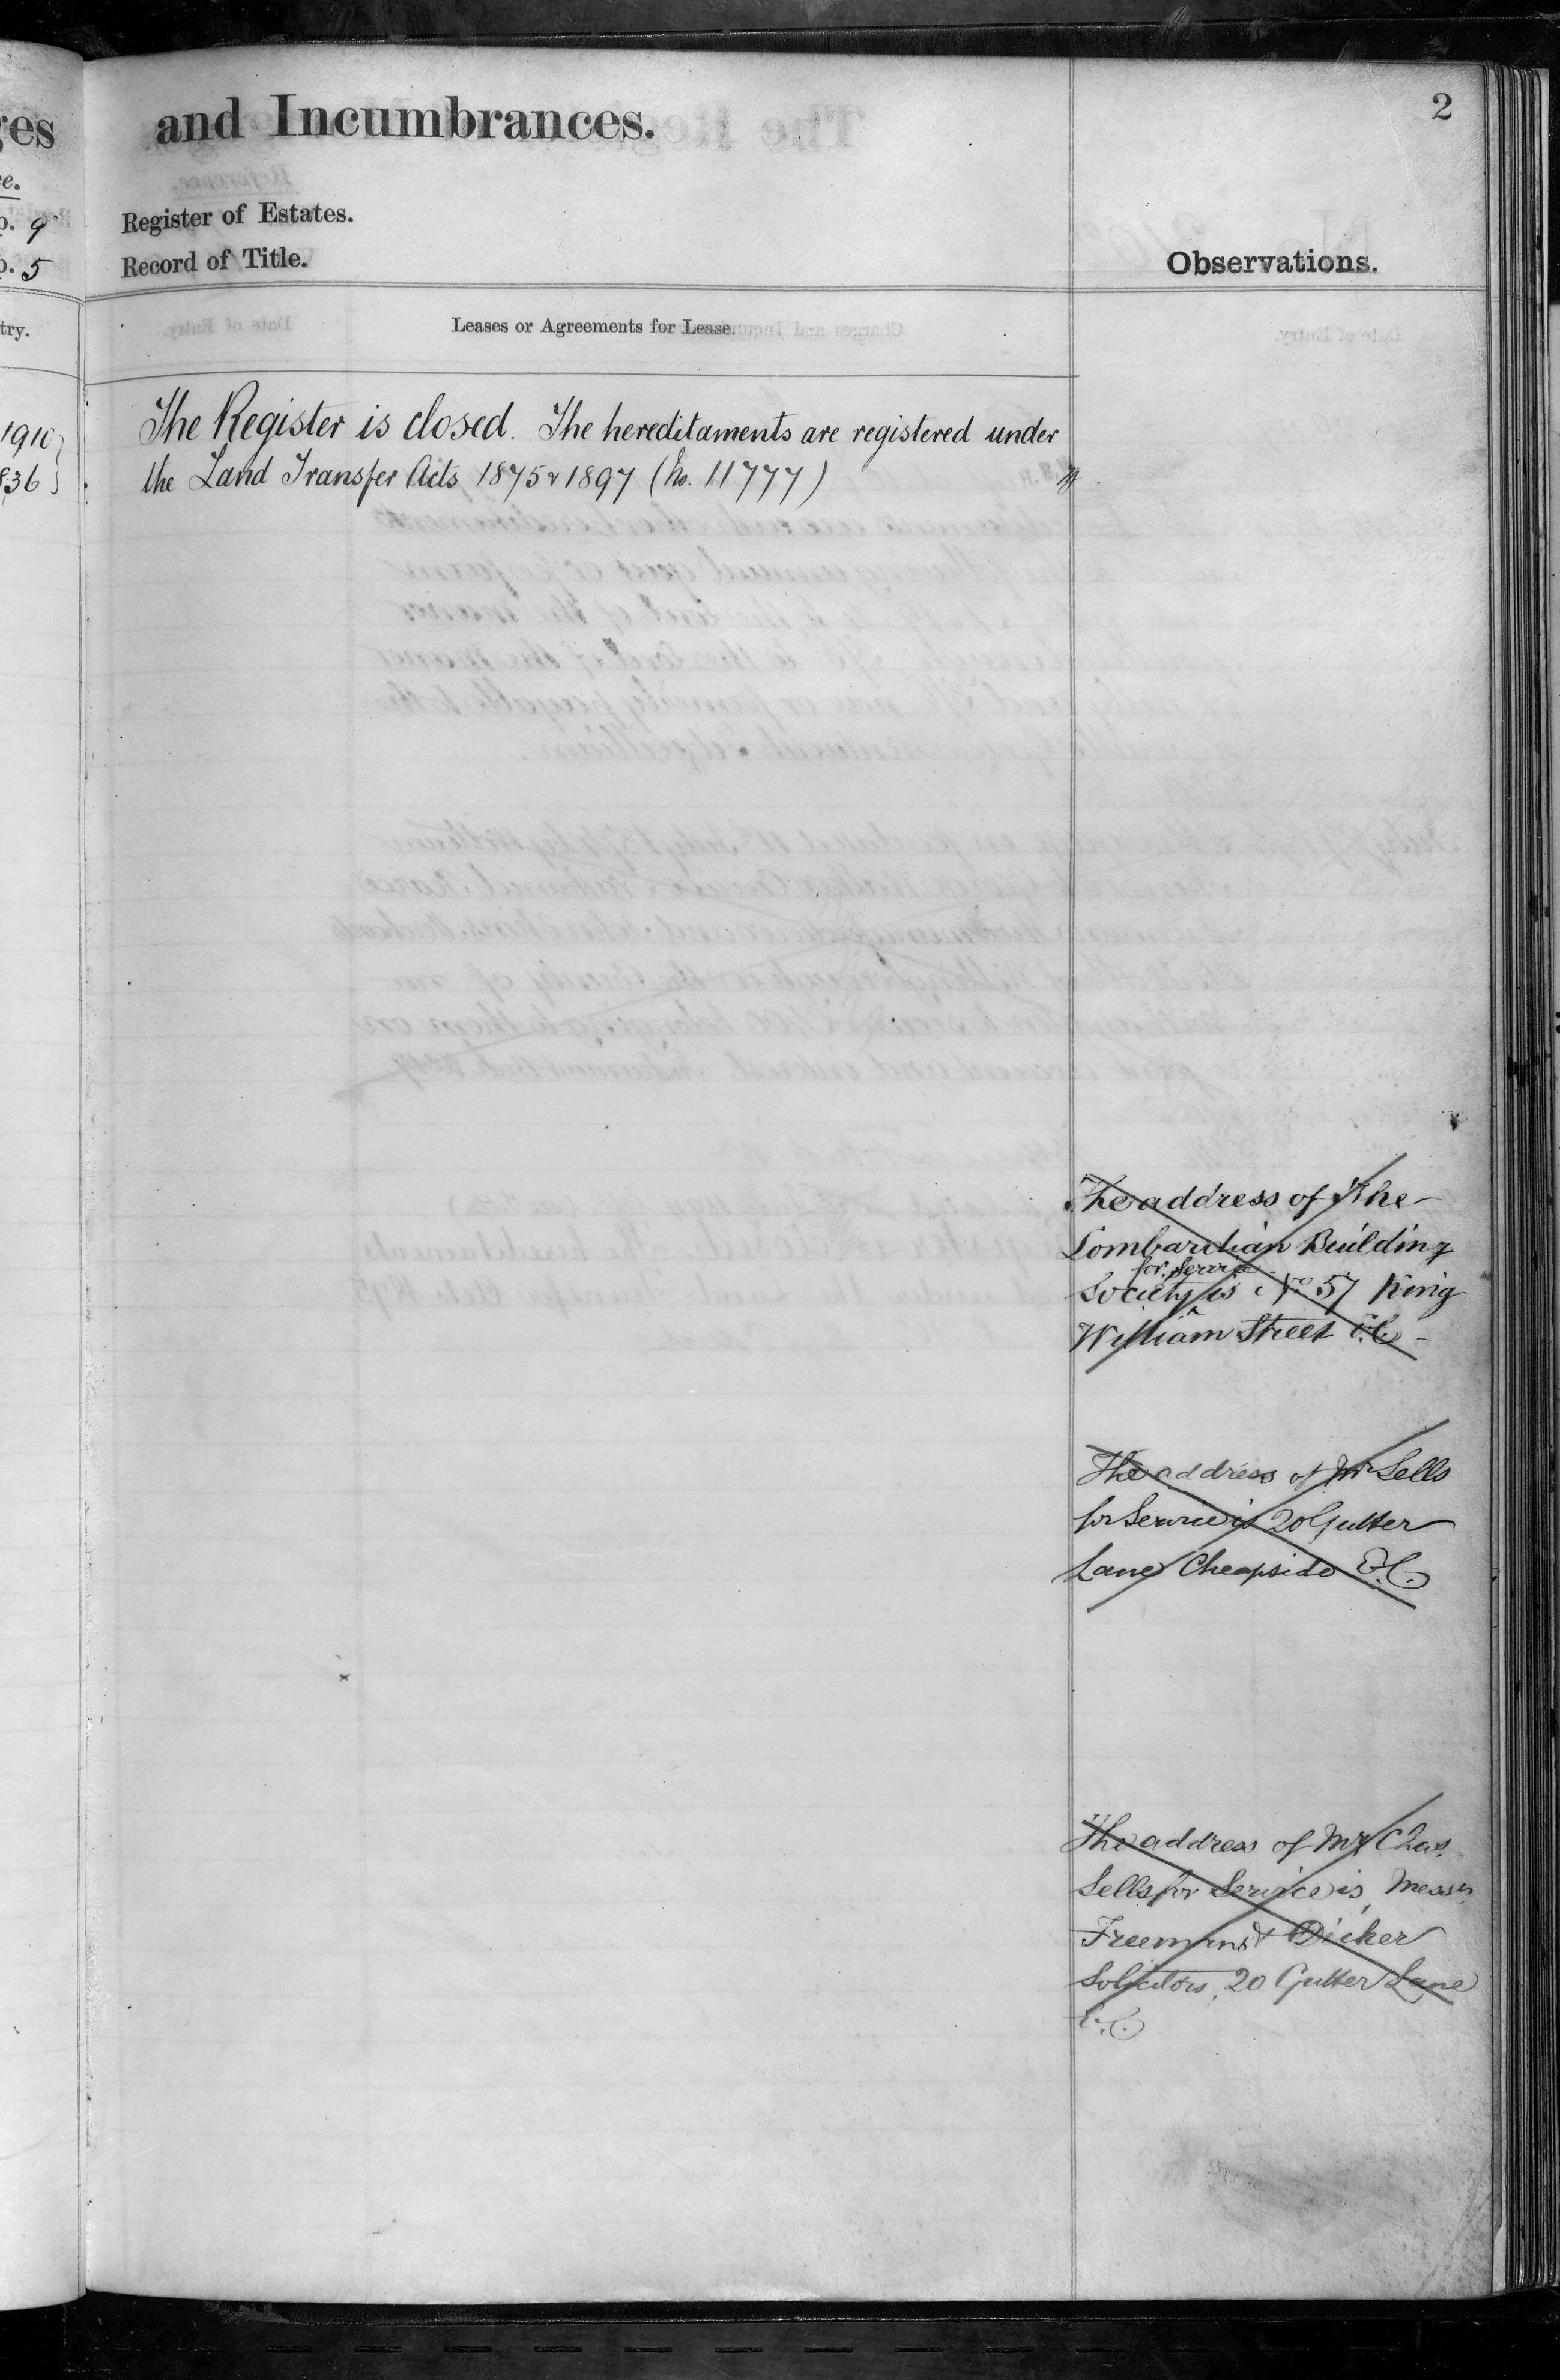 ges
and Incumbrances.
2
e.
p. 9
Register of Estates.
p. 5
Record of Title.
Observations.
try.
Leases or Agreements for Lease.
1910
836
The Register is closed. The hereditaments are registered under
the Land Transfer Acts 1875 & 1897 (No. 11777)
The address of The
Lombardian Building
for Service
Society is No 57 King
William Street E.C.
The address of Mr Sells
for Service is 20 Gutter
Lane Cheapside E.C.
The address of Mr Chas.
Sells for Service is Messrs
Freeman & Dicker
Solicitors, 20 Gutter Lane
E.C.